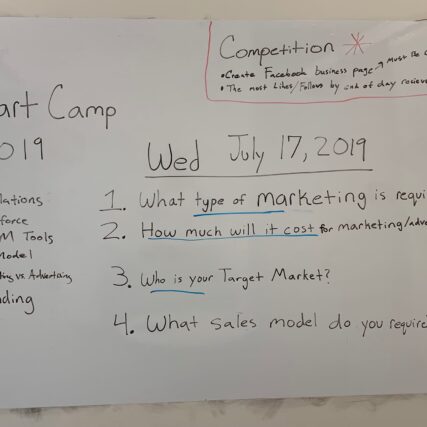 Competition
• Create Facebook business page → Must Be
• The most Likes/Follows by end of day
art Camp
019
Wed July 17, 2019
lations
force
M Tools
Model
ting vs. Advertising
ding
1. What type of marketing is requi
2. How much will it cost for marketing/adve
3. Who is your Target Market?
4. What sales model do you require